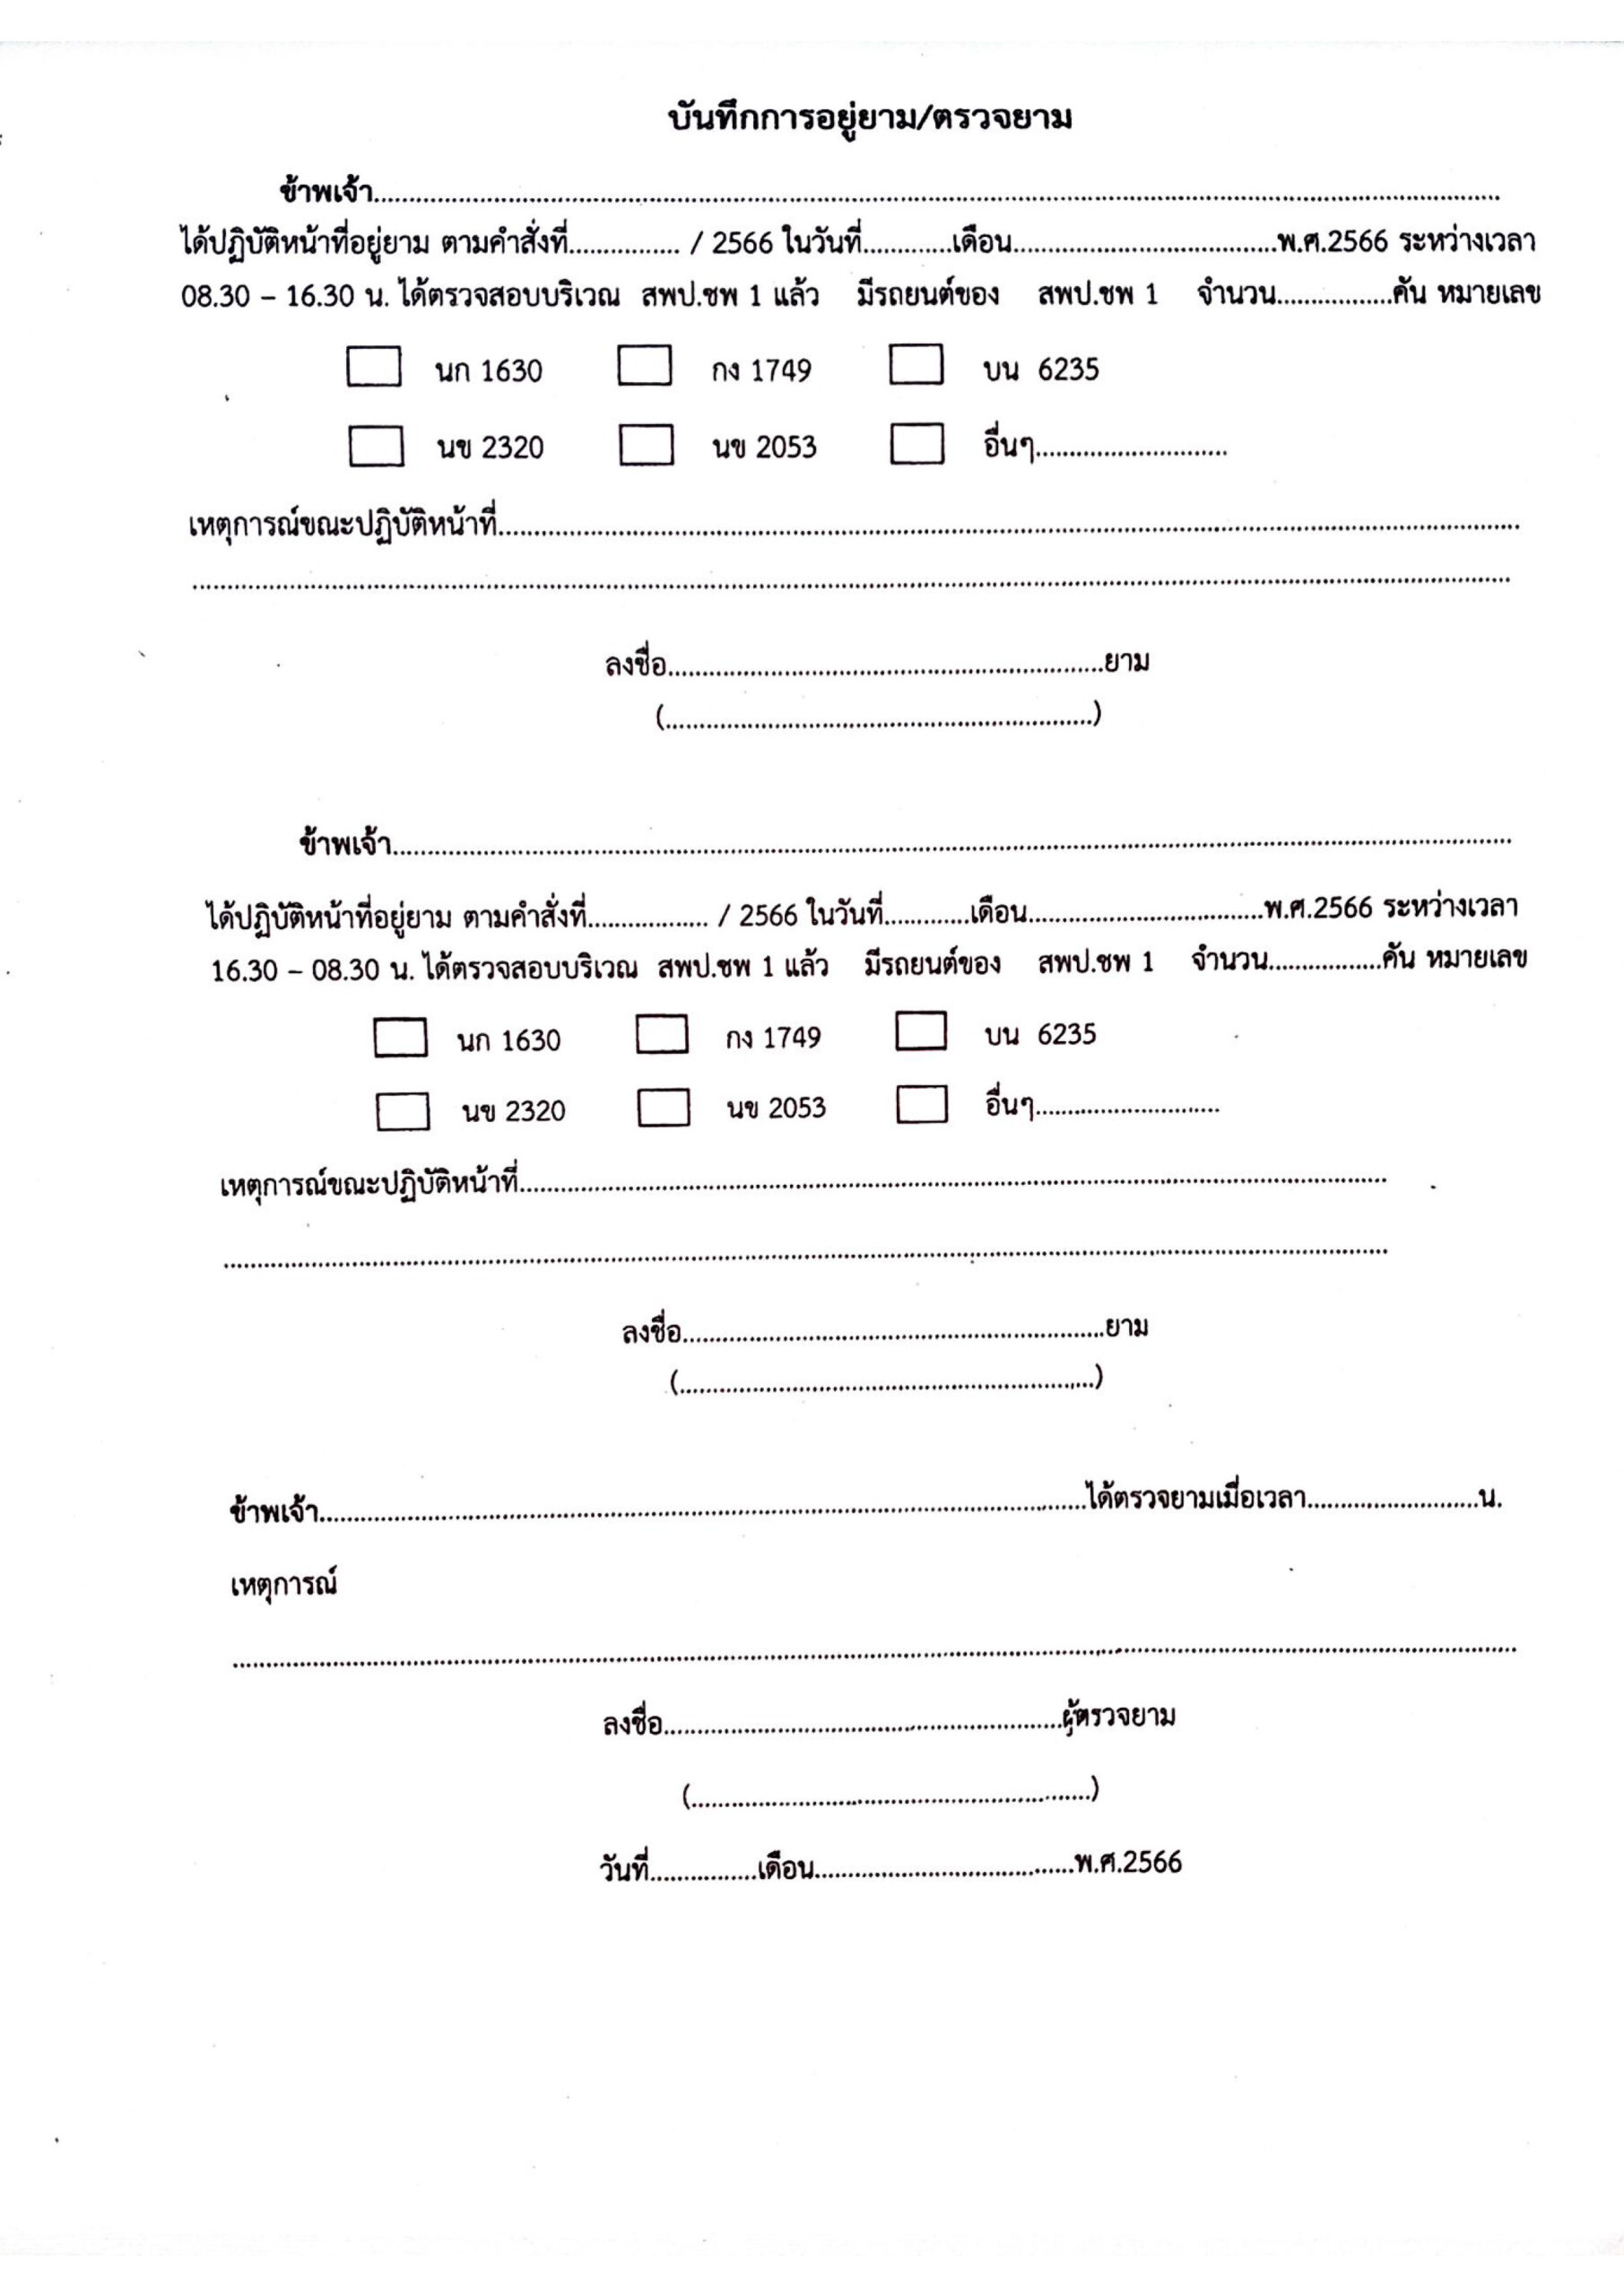 บันทึกการอยู่ยาม/ตรวจยาม
ข้าพเจ้า....................................................................................................
ได้ปฏิบัติหน้าที่อยู่ยาม ตามคำสั่งที่................ / 2566 ในวันที่.............เดือน......................................พ.ศ.2566 ระหว่างเวลา
08.30 – 16.30 น. ได้ตรวจสอบบริเวณ สพป.ชพ 1 แล้ว มีรถยนต์ของ สพป.ชพ 1 จำนวน.................คัน หมายเลข
นก 1630 กง 1749 บน 6235
นข 2320 นข 2053 อื่นๆ............................
เหตุการณ์ขณะปฏิบัติหน้าที่....................................................................................................
....................................................................................................
ลงชื่อ................................................................ยาม
(................................................................)
ข้าพเจ้า....................................................................................................
ได้ปฏิบัติหน้าที่อยู่ยาม ตามคำสั่งที่.................. / 2566 ในวันที่.............เดือน...................................พ.ศ.2566 ระหว่างเวลา
16.30 – 08.30 น. ได้ตรวจสอบบริเวณ สพป.ชพ 1 แล้ว มีรถยนต์ของ สพป.ชพ 1 จำนวน.................คัน หมายเลข
นก 1630 กง 1749 บน 6235
นข 2320 นข 2053 อื่นๆ...........................
เหตุการณ์ขณะปฏิบัติหน้าที่....................................................................................................
....................................................................................................
ลงชื่อ..............................................................ยาม
(..............................................................)
ข้าพเจ้า....................................................................................................ได้ตรวจยามเมื่อเวลา.........................น.
เหตุการณ์
....................................................................................................
ลงชื่อ...........................................................ผู้ตรวจยาม
(............................................................)
วันที่................เดือน......................................พ.ศ.2566